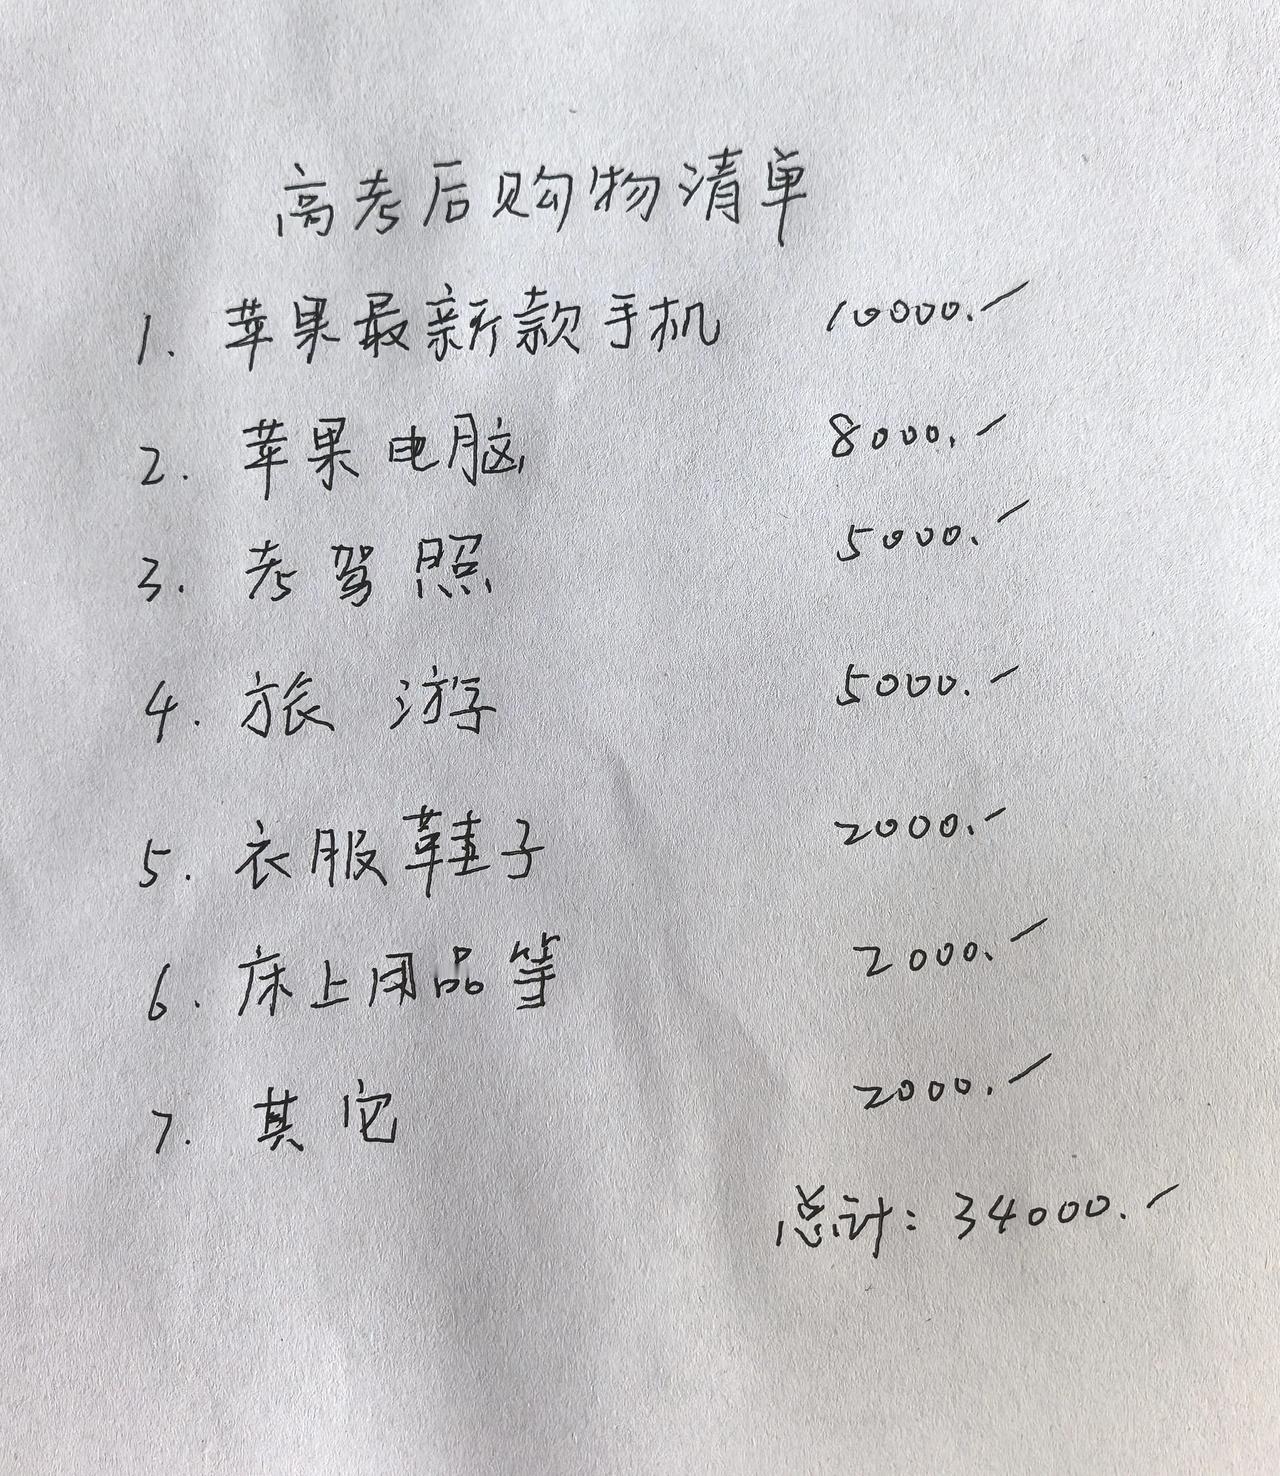 高考后购物清单
1. 苹果最新款手机 10000.-
2. 苹果电脑 8000.-
3. 考驾照 5000.-
4. 旅游 5000.-
5. 衣服鞋子 2000.-
6. 床上用品等 2000.-
7. 其它 2000.-
总计: 34000.-